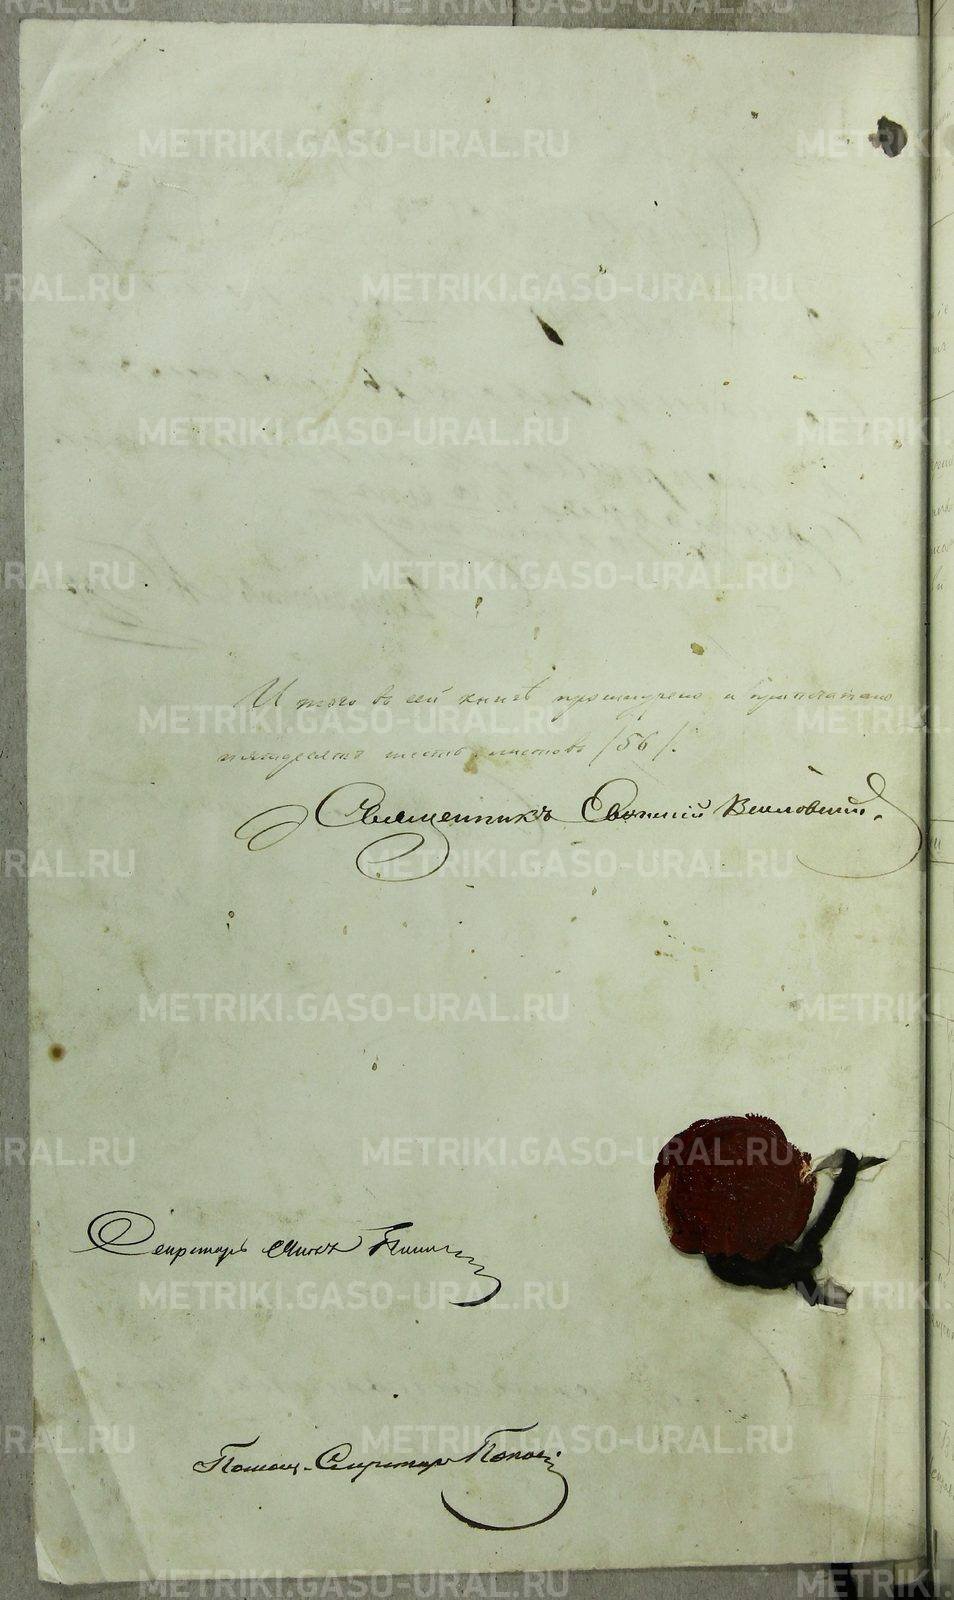 Итого въ сей книгѣ прошнурено и припечатано
пятьдесятъ шесть листовъ /56/.
Священникъ Евгеній
Секретарь
Помощ. Секретаря Попов
METRIKI.GASO-URAL.RU